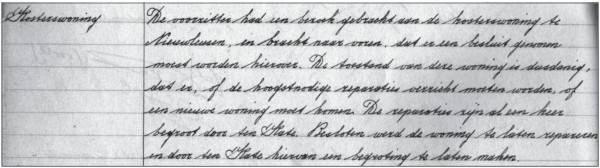 Kosterswoning
De voorzitter had een bezoek gebracht aan de kosterswoning te
Nieuwleusen, en bracht naar voren, dat er een besluit genomen
moest worden hierover. De toestand van deze woning is dusdanig,
dat er, of de hoogstnodige reparaties verricht moeten worden, of
een nieuwe woning moet komen. De reparaties zijn al een keer
begroot door ten Kate. Besloten werd de woning te laten repareren
en door ten Kate hiervan een begroting te laten maken.